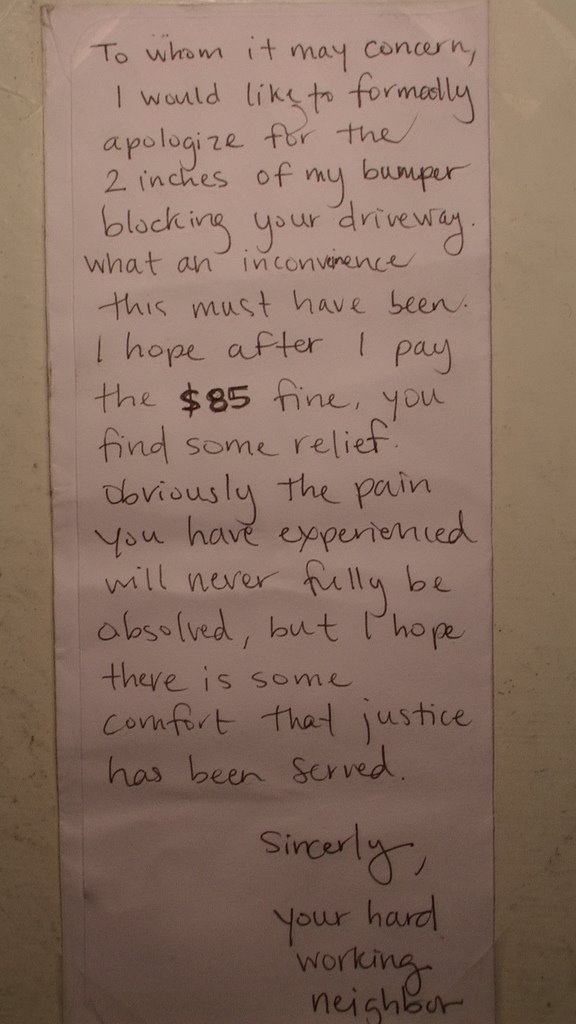 To whom it may concern,
I would like to formally
apologize for the
2 inches of my bumper
blocking your driveway.
what an inconvinence
this must have been.
I hope after I pay
the $85 fine, you
find some relief.
Obviously the pain
you have experienced
will never fully be
absolved, but I hope
there is some
comfort that justice
has been served.
Sincerly,
your hard
working
neighbor